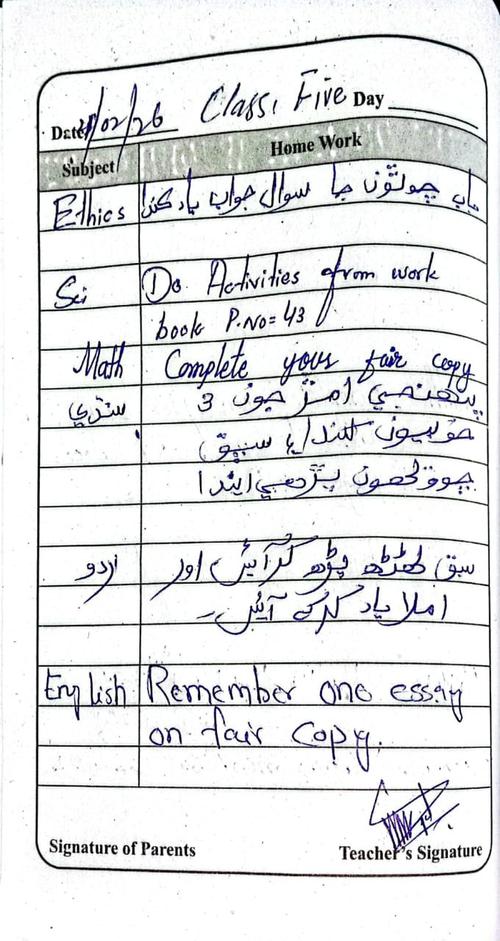 Date 21/02/26 Class, Five Day
Subject Home Work
Ethics باب چوٿون جا سوال جواب ياد ڪندا
Sci Do Activities from work
book P.No=43
Math Complete your fair copy
سنڌي پنهنجي امڙ جون 3
خوبيون لکندا ۽ سبق
چوٿون پڙهي ايندا
اردو سبق پڑھ کر آئیں اور
املا یاد کرکے آئیں۔
English Remember one essay
on fair copy.
Signature of Parents Teacher's Signature